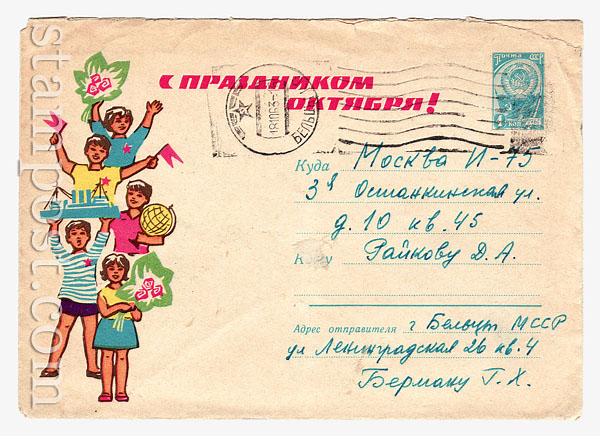 stampost.com
почта СССР
4 коп
С ПРАЗДНИКОМ
ОКТЯБРЯ!
181063
БЕЛЬЦЫ
Куда Москва И-75
3я Останкинская ул.
д. 10 кв. 45
Кому Райкову Д. А.
Адрес отправителя г Бельцы МССР
ул Ленинградская 26 кв. 4
Берману Г. Х.